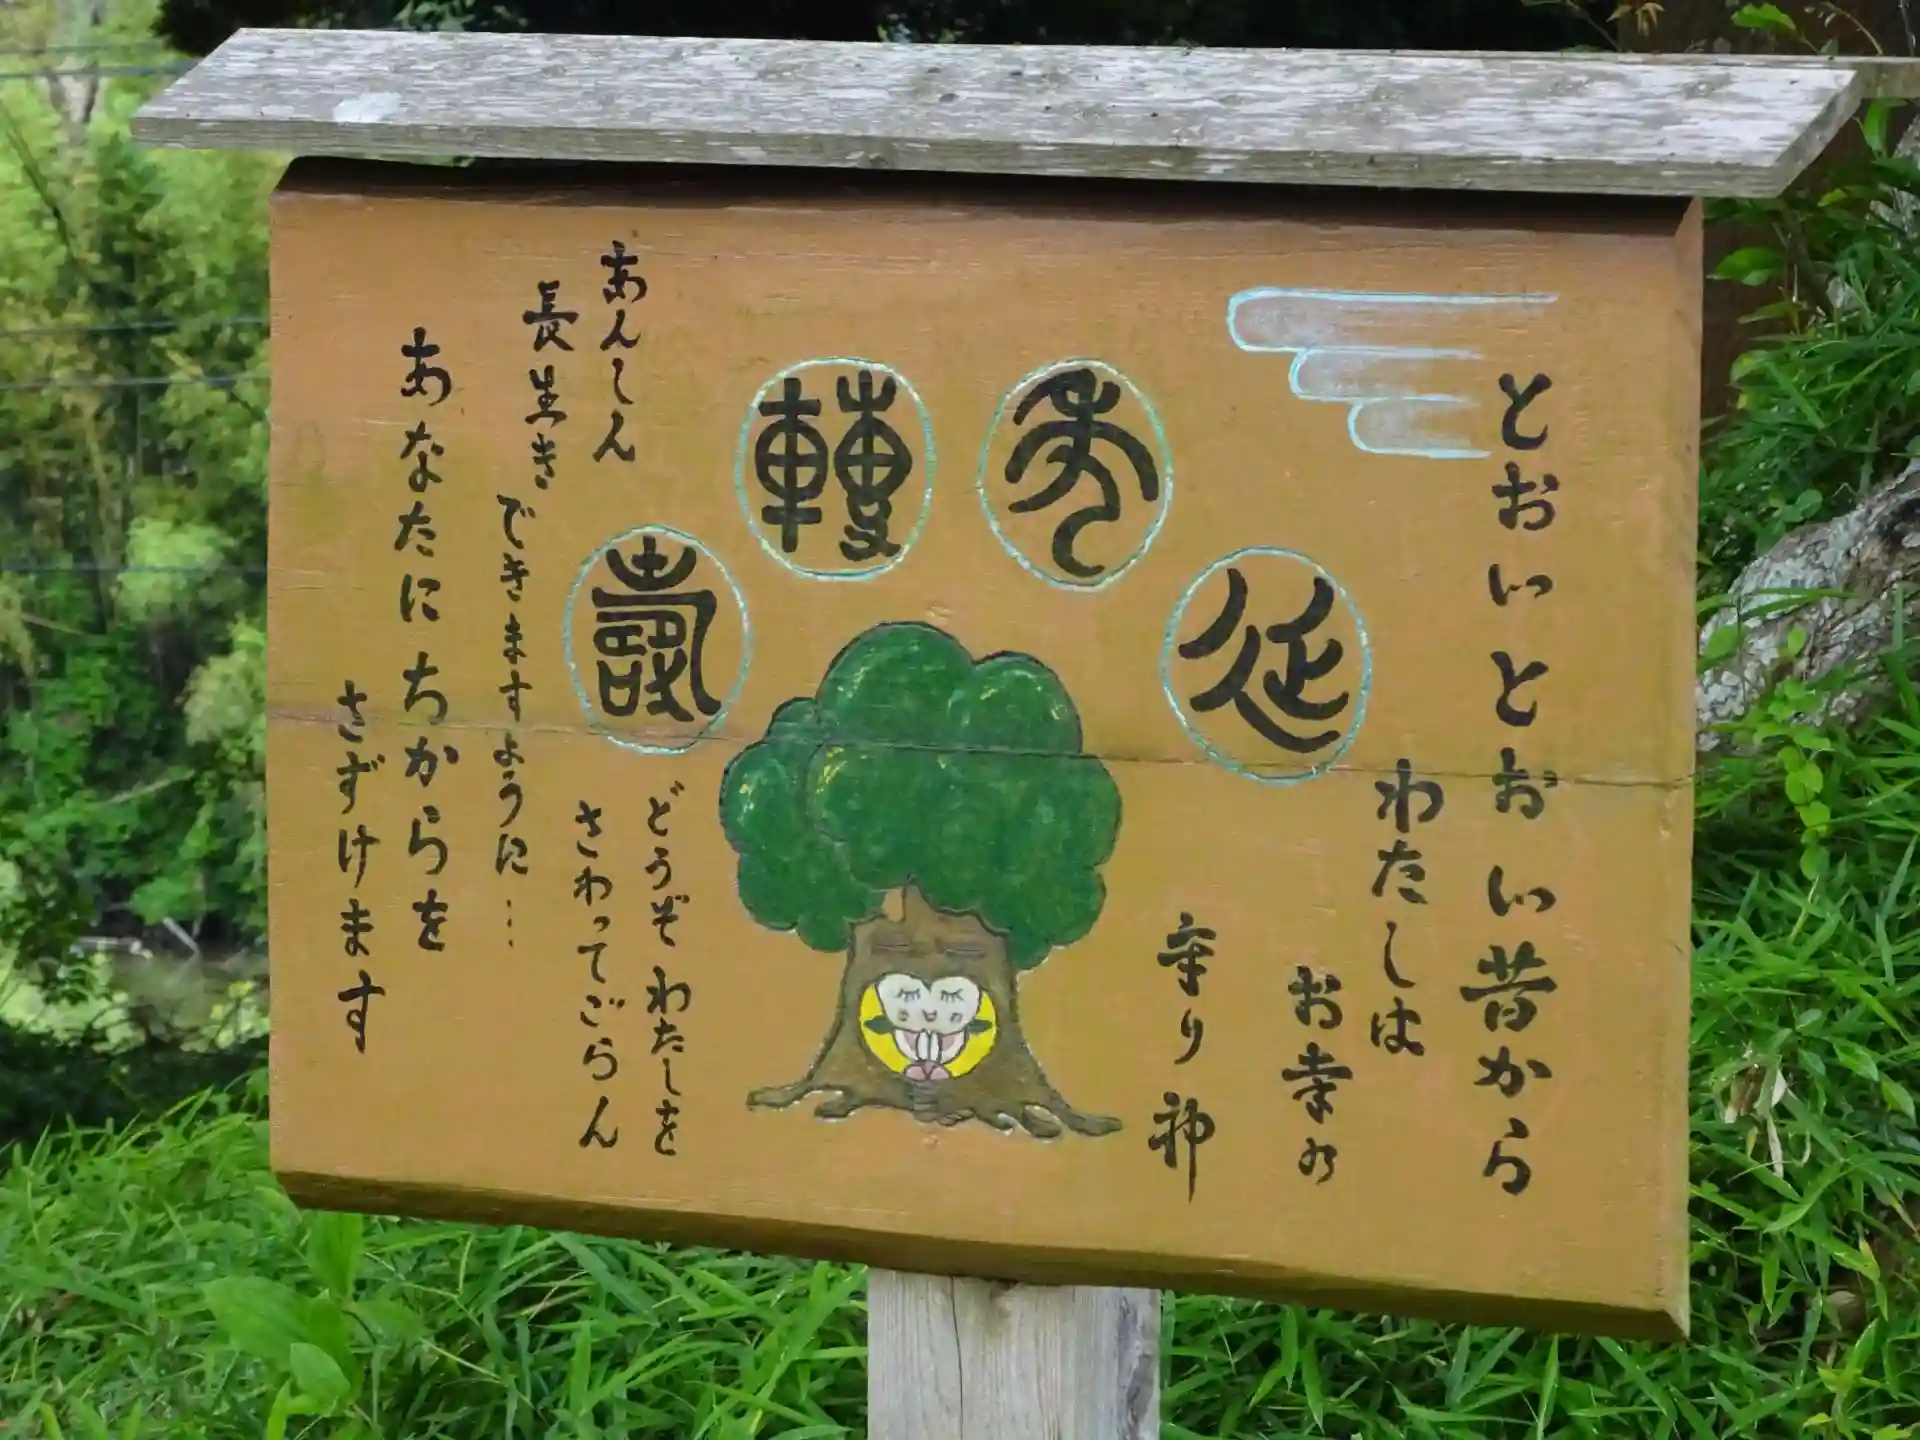 とおいとおい昔から
わたしは
お幸の
守り神
延
年
轉
壽
どうぞわたしを
さわってごらん
あんしん
長生き
できますように…
あなたにちからを
さずけます